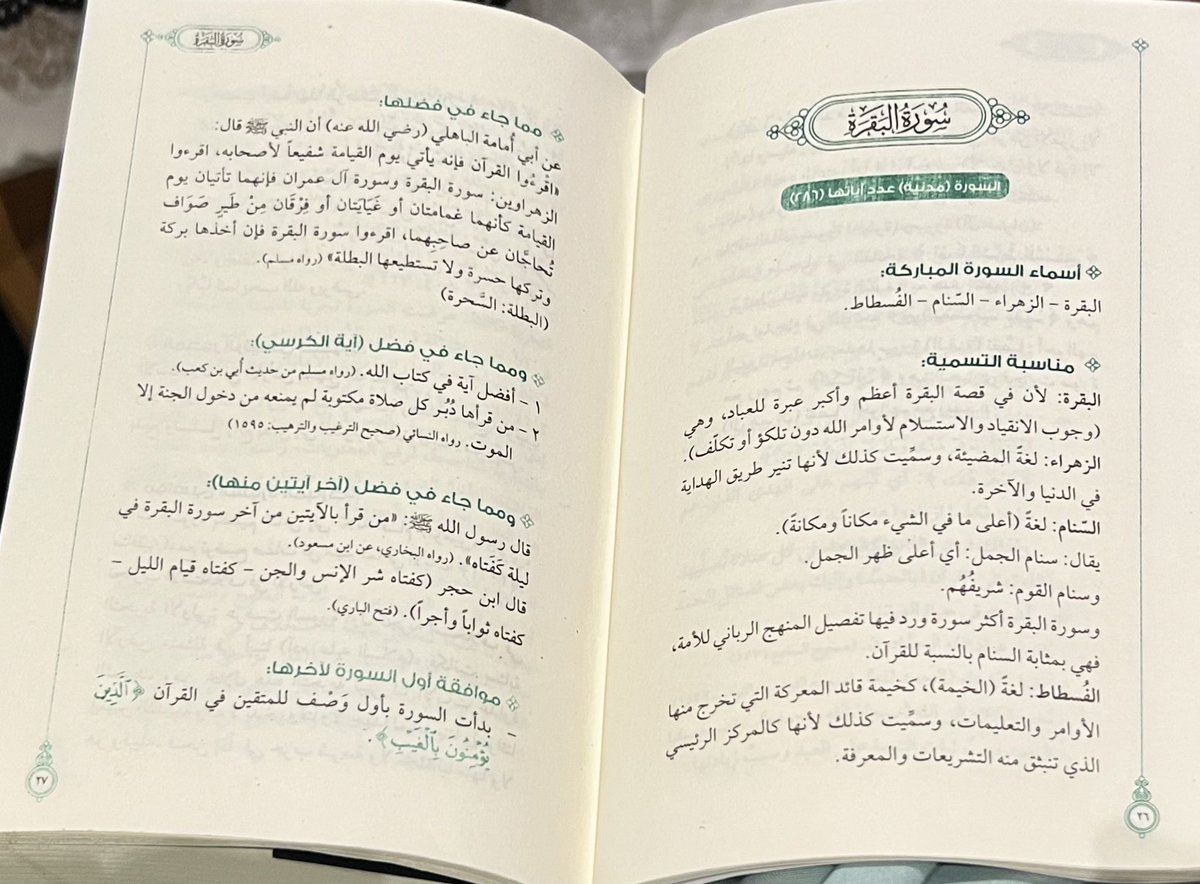 سُورَةُ البَقَرَةِ
السورة (مدنية) عدد آياتها (٢٨٦)
أسماء السورة المباركة:
البقرة – الزهراء – السّنام – الفُسطاط.
مناسبة التسمية:
البقرة: لأن في قصة البقرة أعظم وأكبر عبرة للعباد، وهي
(وجوب الانقياد والاستسلام لأوامر الله دون تلكؤ أو تكلّف).
الزهراء: لغةً المضيئة، وسمِّيت كذلك لأنها تنير طريق الهداية
في الدنيا والآخرة.
السّنام: لغة (أعلى ما في الشيء مكاناً ومكانةً).
يقال: سنام الجمل: أي أعلى ظهر الجمل.
وسنام القوم: شريفُهُم.
وسورة البقرة أكثر سورة ورد فيها تفصيل المنهج الرباني للأمة،
فهي بمثابة السنام بالنسبة للقرآن.
الفُسطاط: لغةً (الخيمة)، كخيمة قائد المعركة التي تخرج منها
الأوامر والتعليمات، وسمِّيت كذلك لأنها كالمركز الرئيسي
الذي تنبثق منه التشريعات والمعرفة.
٢٦
سُورَةُ البَقَرَةِ
مما جاء في فضلها:
عن أبي أُمامة الباهلي (رضي الله عنه) أن النبي ﷺ قال:
«اقْرءُوا القرآن فإنه يأتي يوم القيامة شفيعاً لأصحابه، اقرءوا
الزهراوين: سورة البقرة وسورة آل عمران فإنهما تأتيان يوم
القيامة كأنهما غمامتان أو غَيَايَتان أو فِرْقَان مِنْ طَيرٍ صَوَاف
تُحاجَّان عن صاحِبِهما، اقرءوا سورة البقرة فإن أخذها بركة
وتركها حسرة ولا تستطيعها البطلة» (رواه مسلم).
(البطلة: السَّحرة)
ومما جاء في فضل (آية الكرسي):
١ – أفضل آية في كتاب الله. (رواه مسلم من حديث أبي بن كعب).
٢ – من قرأها دُبُر كل صلاة مكتوبة لم يمنعه من دخول الجنة إلا
الموت. رواه النسائي (صحيح الترغيب والترهيب: ١٥٩٥)
ومما جاء في فضل (آخر آيتين منها):
قال رسول الله ﷺ: «من قرأ بالآيتين من آخر سورة البقرة في
ليلة كَفَتاه». (رواه البخاري، عن ابن مسعود).
قال ابن حجر (كفتاه شر الإنس والجن – كفتاه قيام الليل –
كفتاه ثواباً وأجراً). (فتح الباري).
موافقة أول السورة لآخرها:
– بدأت السورة بأول وَصْف للمتقين في القرآن ﴿ٱلَّذِينَ
يُؤْمِنُونَ بِٱلْغَيْبِ﴾.
٢٧